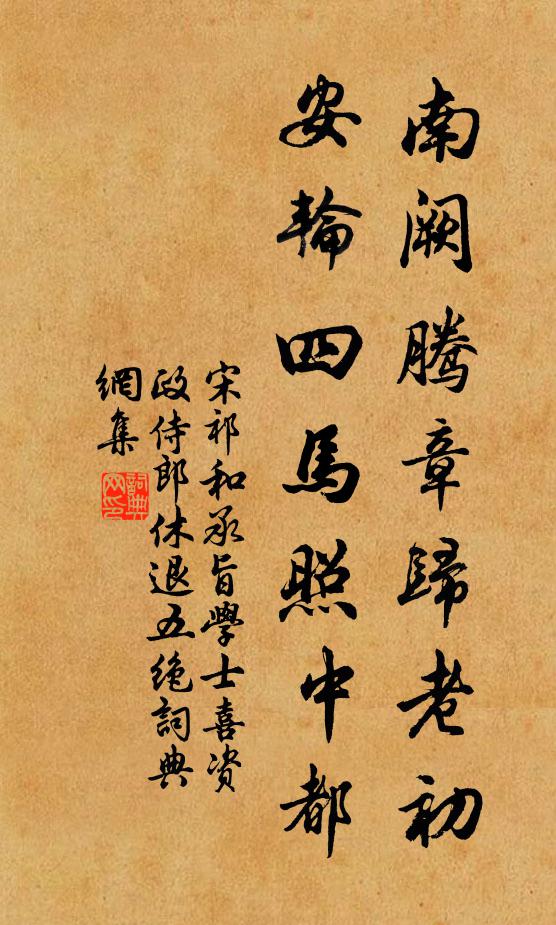 南阙腾章歸老初
安輪四馬照中都
宋祁和承旨學士喜资
政侍郎休退五绝詞典
網集
詞典
网印